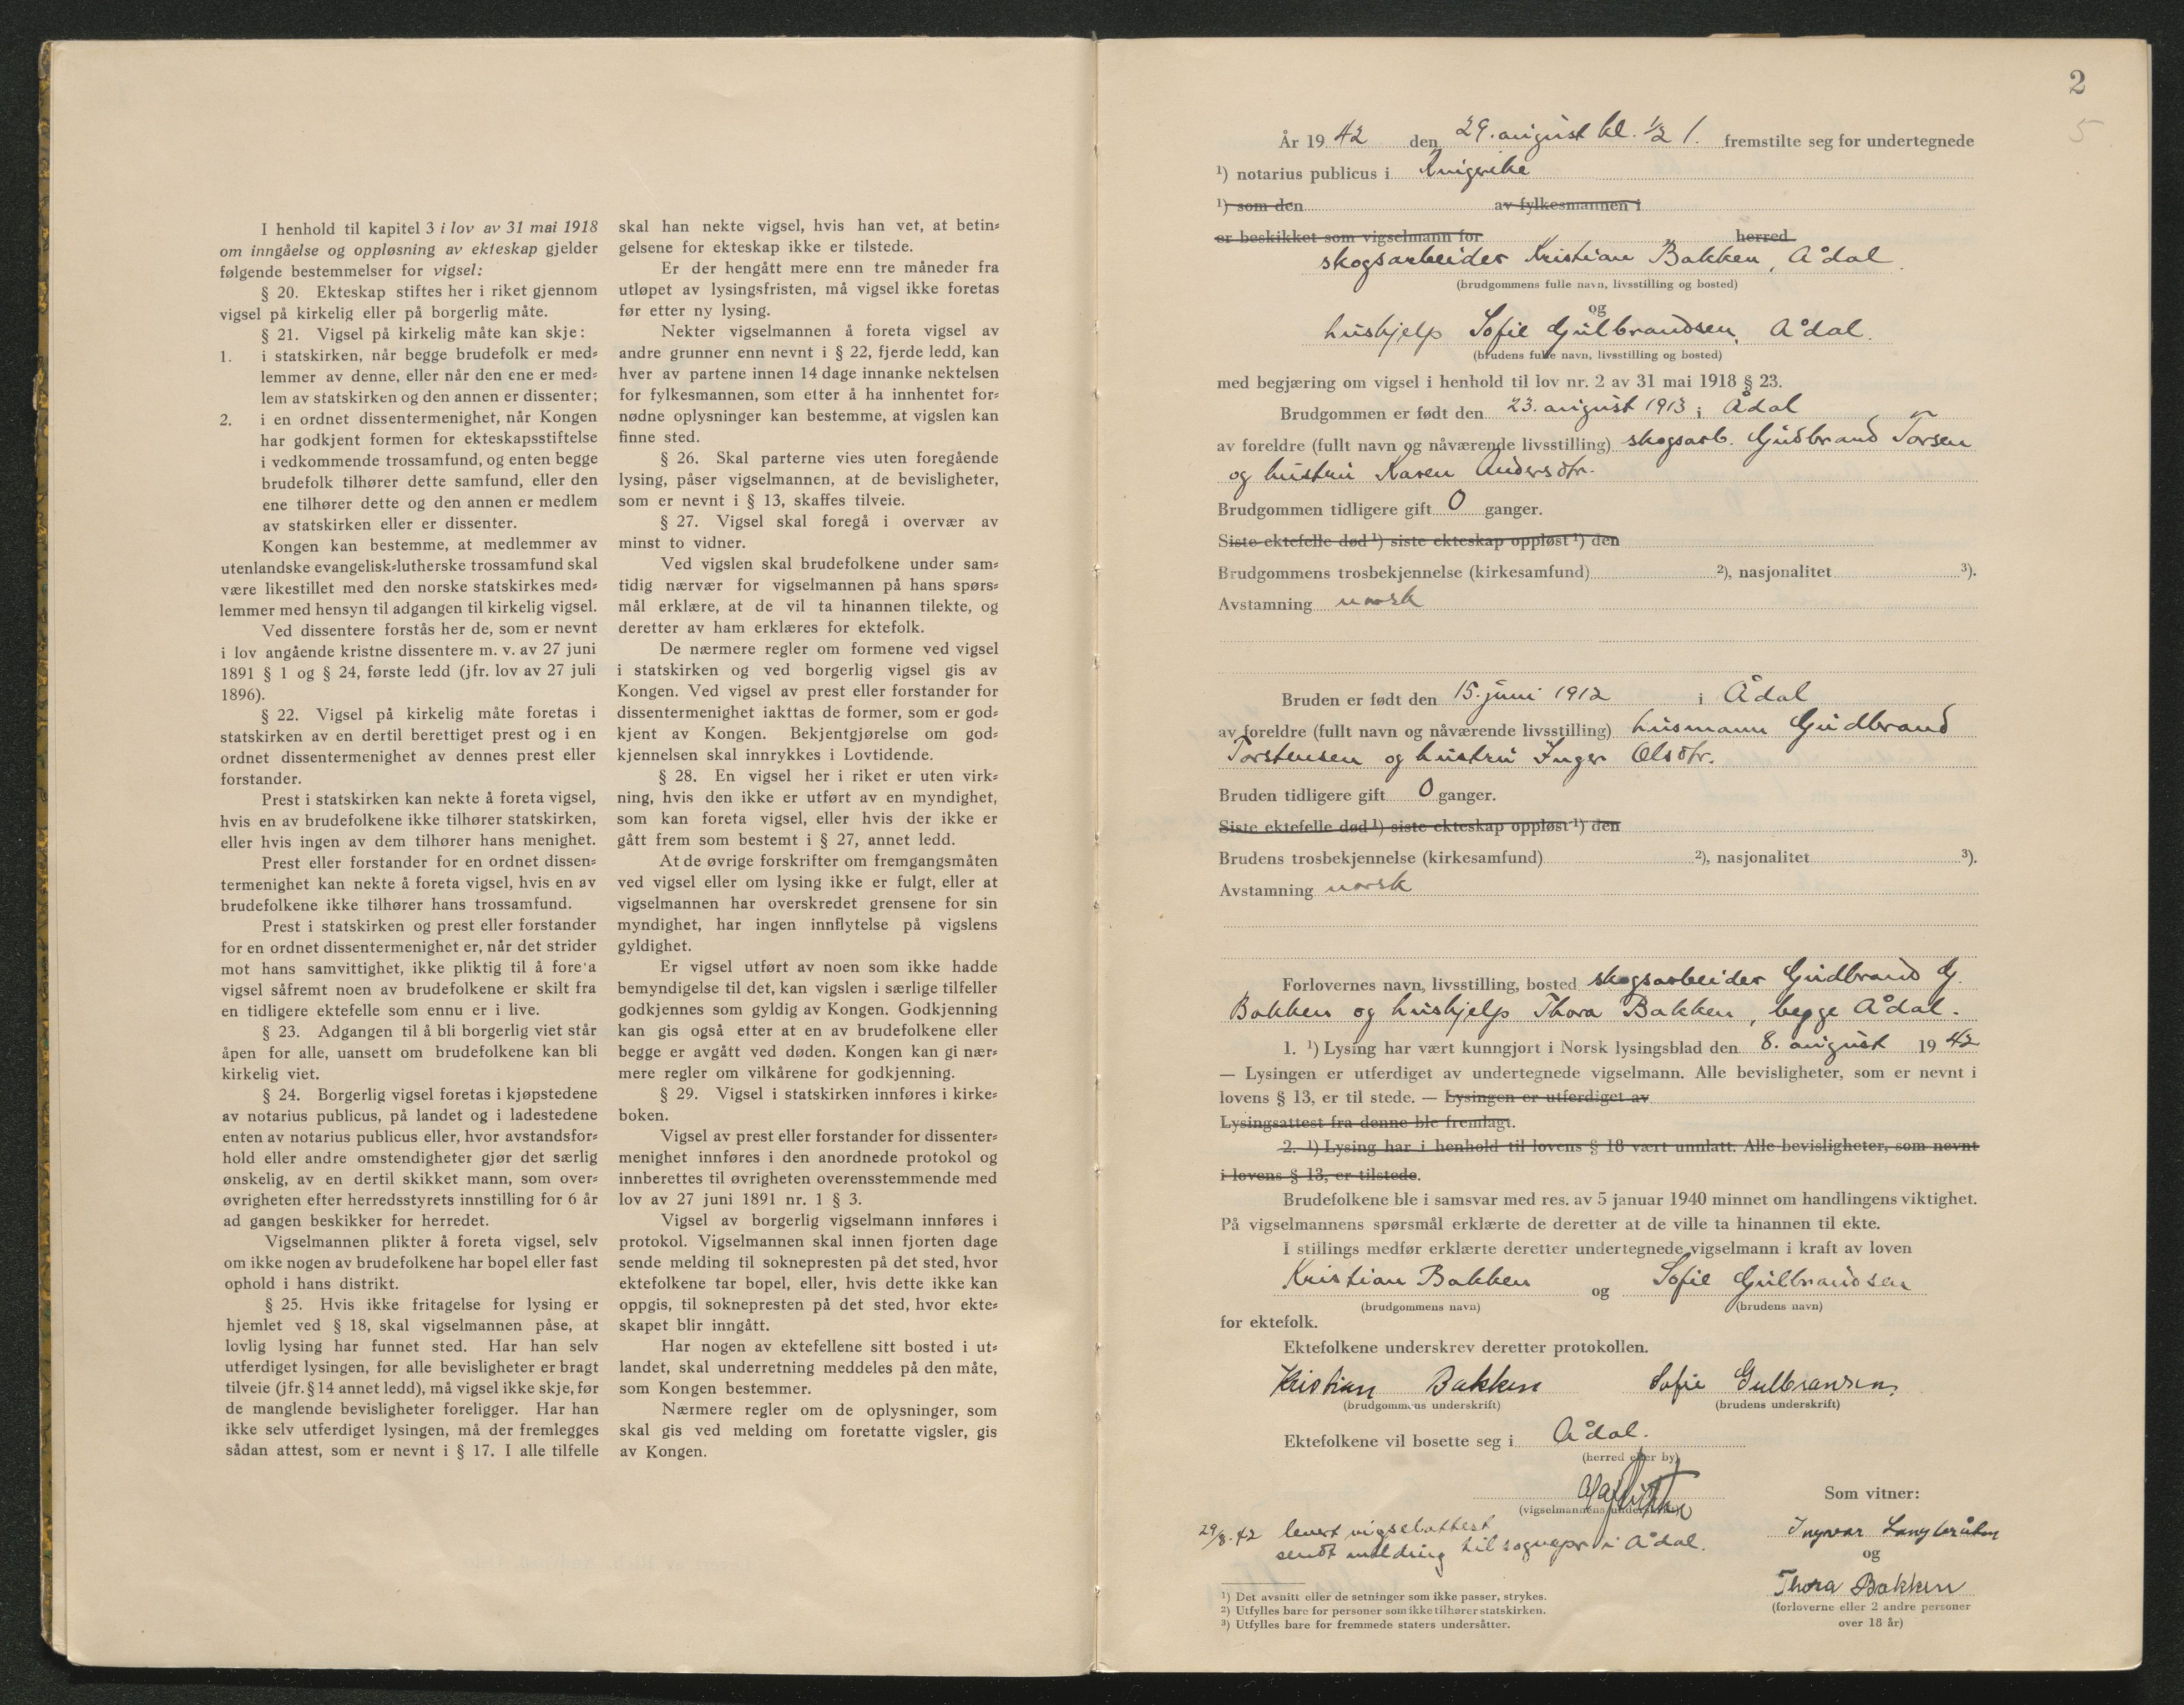 I henhold til kapitel 3 i lov av 31 mai 1918
om inngåelse og oppløsning av ekteskap gjelder
følgende bestemmelser for vigsel:
§ 20. Ekteskap stiftes her i riket gjennom
vigsel på kirkelig eller på borgerlig måte.
§ 21. Vigsel på kirkelig måte kan skje:
1. i statskirken, når begge brudefolk er med-
lemmer av denne, eller når den ene er med-
lem av statskirken og den annen er dissenter;
2. i en ordnet dissentermenighet, når Kongen
har godkjent formen for ekteskapsstiftelse
i vedkommende trossamfund, og enten begge
brudefolk tilhører dette samfund, eller den
ene tilhører dette og den annen er medlem
av statskirken eller er dissenter.
Kongen kan bestemme, at medlemmer av
utenlandske evangelisk-lutherske trossamfund skal
være likestillet med den norske statskirkes med-
lemmer med hensyn til adgangen til kirkelig vigsel.
Ved dissentere forstås her de, som er nevnt
i lov angående kristne dissentere m. v. av 27 juni
1891 § 1 og § 24, første ledd (jfr. lov av 27 juli
1896).
§ 22. Vigsel på kirkelig måte foretas i
statskirken av en dertil berettiget prest og i en
ordnet dissentermenighet av dennes prest eller
forstander.
Prest i statskirken kan nekte å foreta vigsel,
hvis en av brudefolkene ikke tilhører statskirken,
eller hvis ingen av dem tilhører hans menighet.
Prest eller forstander for en ordnet dissen-
termenighet kan nekte å foreta vigsel, hvis en av
brudefolkene ikke tilhører hans trossamfund.
Prest i statskirken og prest eller forstander
for en ordnet dissentermenighet er, når det strider
mot hans samvittighet, ikke pliktig til å fore'a
vigsel såfremt noen av brudefolkene er skilt fra
en tidligere ektefelle som ennu er i live.
§ 23. Adgangen til å bli borgerlig viet står
åpen for alle, uansett om brudefolkene kan bli
kirkelig viet.
§ 24. Borgerlig vigsel foretas i kjøpstedene
av notarius publicus, på landet og i ladestedene
enten av notarius publicus eller, hvor avstandsfor-
hold eller andre omstendigheter gjør det særlig
ønskelig, av en dertil skikket mann, som over-
øvrigheten efter herredsstyrets innstilling for 6 år
ad gangen beskikker for herredet.
Vigselmannen plikter å foreta vigsel, selv
om ikke nogen av brudefolkene har bopel eller fast
ophold i hans distrikt.
§ 25. Hvis ikke fritagelse for lysing er
hjemlet ved § 18, skal vigselmannen påse, at
lovlig lysing har funnet sted. Har han selv
utferdiget lysingen, før alle bevisligheter er bragt
tilveie (jfr. § 14 annet ledd), må vigsel ikke skje, før
de manglende bevisligheter foreligger. Har han
ikke selv utferdiget lysingen, må der fremlegges
sådan attest, som er nevnt i § 17. I alle tilfelle
skal han nekte vigsel, hvis han vet, at betin-
gelsene for ekteskap ikke er tilstede.
Er der hengått mere enn tre måneder fra
utløpet av lysingsfristen, må vigsel ikke foretas
før etter ny lysing.
Nekter vigselmannen å foreta vigsel av
andre grunner enn nevnt i § 22, fjerde ledd, kan
hver av partene innen 14 dage innanke nektelsen
for fylkesmannen, som etter å ha innhentet for-
nødne oplysninger kan bestemme, at vigslen kan
finne sted.
§ 26. Skal parterne vies uten foregående
lysing, påser vigselmannen, at de bevisligheter,
som er nevnt i § 13, skaffes tilveie.
§ 27. Vigsel skal foregå i overvær av
minst to vidner.
Ved vigslen skal brudefolkene under sam-
tidig nærvær for vigselmannen på hans spørs-
mål erklære, at de vil ta hinannen tilekte, og
deretter av ham erklæres for ektefolk.
De nærmere regler om formene ved vigsel
i statskirken og ved borgerlig vigsel gis av
Kongen. Ved vigsel av prest eller forstander for
dissentermenighet iakttas de former, som er god-
kjent av Kongen. Bekjentgjørelse om god-
kjennelsen skal innrykkes i Lovtidende.
§ 28. En vigsel her i riket er uten virk-
ning, hvis den ikke er utført av en myndighet,
som kan foreta vigsel, eller hvis der ikke er
gått frem som bestemt i § 27, annet ledd.
At de øvrige forskrifter om fremgangsmåten
ved vigsel eller om lysing ikke er fulgt, eller at
vigselmannen har overskredet grensene for sin
myndighet, har ingen innflytelse på vigslens
gyldighet.
Er vigsel utført av noen som ikke hadde
bemyndigelse til det, kan vigslen i særlige tilfeller
godkjennes som gyldig av Kongen. Godkjenning
kan gis også etter at en av brudefolkene eller
begge er avgått ved døden. Kongen kan gi nær-
mere regler om vilkårene for godkjenning.
§ 29. Vigsel i statskirken innføres i kirke-
boken.
Vigsel av prest eller forstander for dissenter-
menighet innføres i den anordnede protokol og
innberettes til øvrigheten overensstemmende med
lov av 27 juni 1891 nr. 1 § 3.
Vigsel av borgerlig vigselmann innføres i
protokol. Vigselmannen skal innen fjorten dage
sende melding til soknepresten på det sted, hvor
ektefolkene tar bopel, eller, hvis dette ikke kan
oppgis, til soknepresten på det sted, hvor ekte-
skapet blir inngått.
Har nogen av ektefellene sitt bosted i ut-
landet, skal underretning meddeles på den måte,
som Kongen bestemmer.
Nærmere regler om de oplysninger, som
skal gis ved melding om foretatte vigsler, gis
av Kongen.
2
5
År 19 42 den 29. august kl. 1/2 1. fremstilte seg for undertegnede
1) notarius publicus i Ringerike
1) som den av fylkesmannen i
er beskikket som vigselmann for herred
skogsarbeider Kristian Bakken, Ådal.
(brudgommens fulle navn, livsstilling og bosted)
og
hushjelp Sofie Gulbrandsen, Ådal.
(brudens fulle navn, livsstilling og bosted)
med begjæring om vigsel i henhold til lov nr. 2 av 31 mai 1918 § 23.
Brudgommen er født den 23. august 1913 i Ådal
av foreldre (fullt navn og nåværende livsstilling) skogsarb. Gudbrand Torsen
og hustru Karen Andersdtr.
Brudgommen tidligere gift 0 ganger.
Siste ektefelle død 1) siste ekteskap oppløst 1) den
Brudgommens trosbekjennelse (kirkesamfund) 2), nasjonalitet 3).
Avstamning norsk
Bruden er født den 15. juni 1912 i Ådal
av foreldre (fullt navn og nåværende livsstilling) husmann Gudbrand
Torstensen og hustru Inger Olsdtr.
Bruden tidligere gift 0 ganger.
Siste ektefelle død 1) siste ekteskap oppløst 1) den
Brudens trosbekjennelse (kirkesamfund) 2), nasjonalitet 3).
Avstamning norsk
Forlovernes navn, livsstilling, bosted skogsarbeider Gudbrand G.
Bakken og hushjelp Thora Bakken, begge Ådal.
1. 1) Lysing har vært kunngjort i Norsk lysingsblad den 8. august 19 42
— Lysingen er utferdiget av undertegnede vigselmann. Alle bevisligheter, som er nevnt i
lovens § 13, er til stede. — Lysingen er utferdiget av
Lysingsattest fra denne ble fremlagt.
2. 1) Lysing har i henhold til lovens § 18 vært unnlatt. Alle bevisligheter, som nevnt
i lovens § 13, er tilstede.
Brudefolkene ble i samsvar med res. av 5 januar 1940 minnet om handlingens viktighet.
På vigselmannens spørsmål erklærte de deretter at de ville ta hinannen til ekte.
I stillings medfør erklærte deretter undertegnede vigselmann i kraft av loven
Kristian Bakken og Sofie Gulbrandsen
(brudgommens navn) (brudens navn)
for ektefolk.
Ektefolkene underskrev deretter protokollen.
Kristian Bakken Sofie Gulbransen.
(brudgommens underskrift) (brudens underskrift)
Ektefolkene vil bosette seg i Ådal.
(herred eller by)
(vigselmannens underskrift)
Som vitner:
29/8.42 levert vigselattest
sendt melding til sognepr. i Ådal.
Ingvar Langbråten
og
Thora Bakken
(forloverne eller 2 andre personer
over 18 år)
1) Det avsnitt eller de setninger som ikke passer, strykes.
2) Utfylles bare for personer som ikke tilhører statskirken.
3) Utfylles bare for fremmede staters undersåtter.